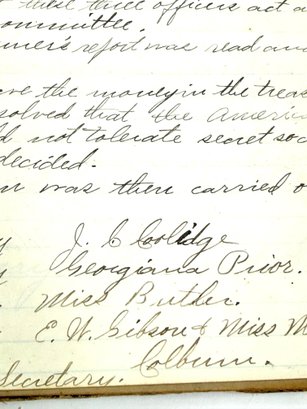 these three officers act a
ommittee.
urer's report was read an
ove the money in the trea
solved that the America
d not tolerate secret soc
decided.
m was then carried o
y J. C. Coolidge
y Georgiana Prior.
Miss Butler.
E. W. Gibson & Miss M
Colburn.
Secretary.